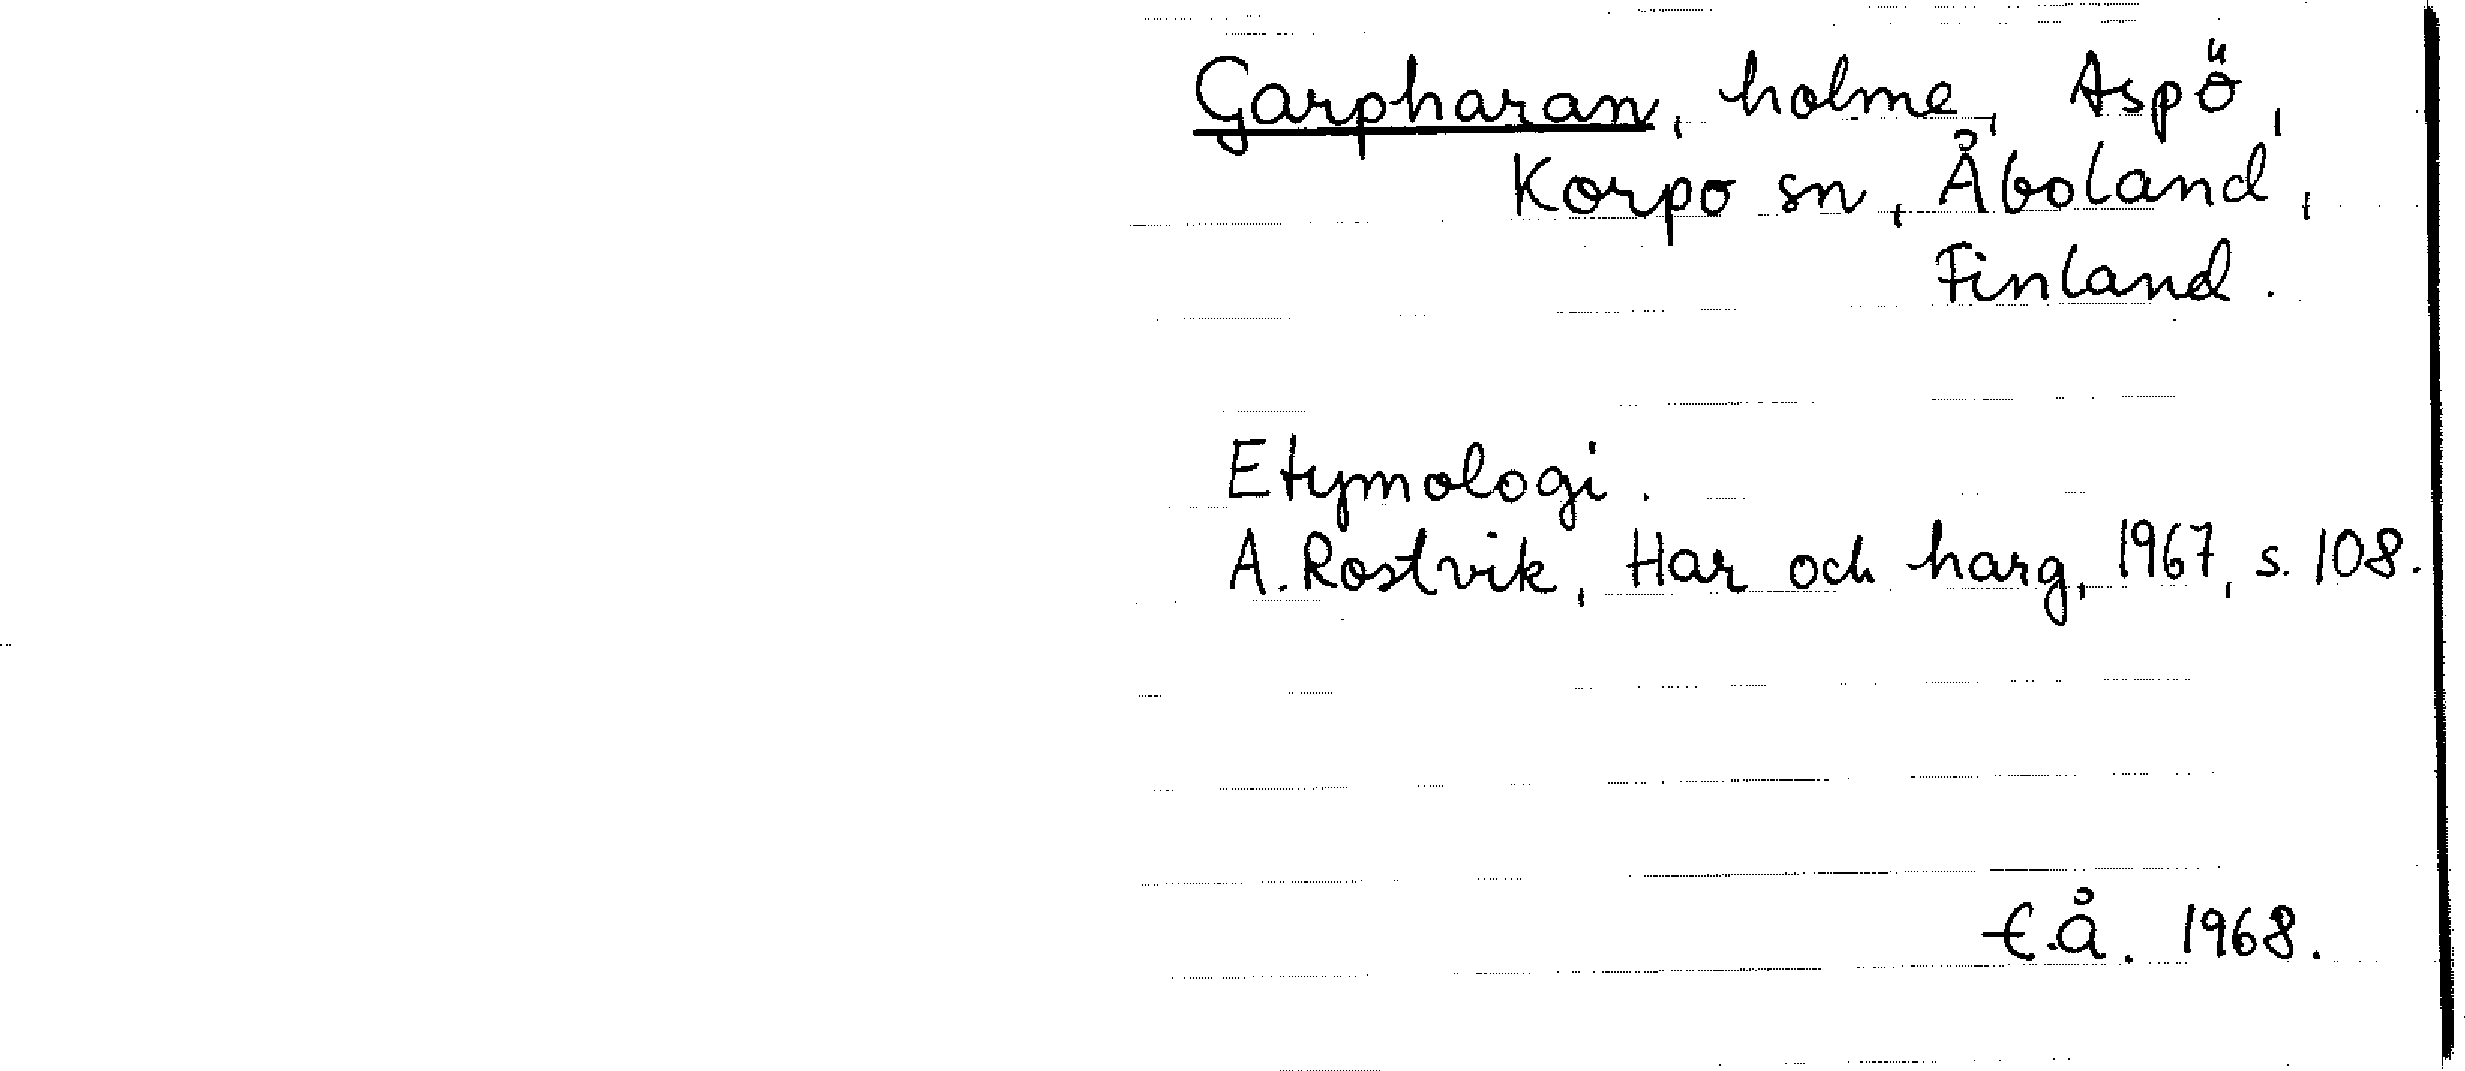 Garpharan, holme, Aspö,
Korpo sn, Åboland,
Finland.
Etymologi.
A. Rostvik, Har och harg, 1967, s. 108.
E.Å. 1968.